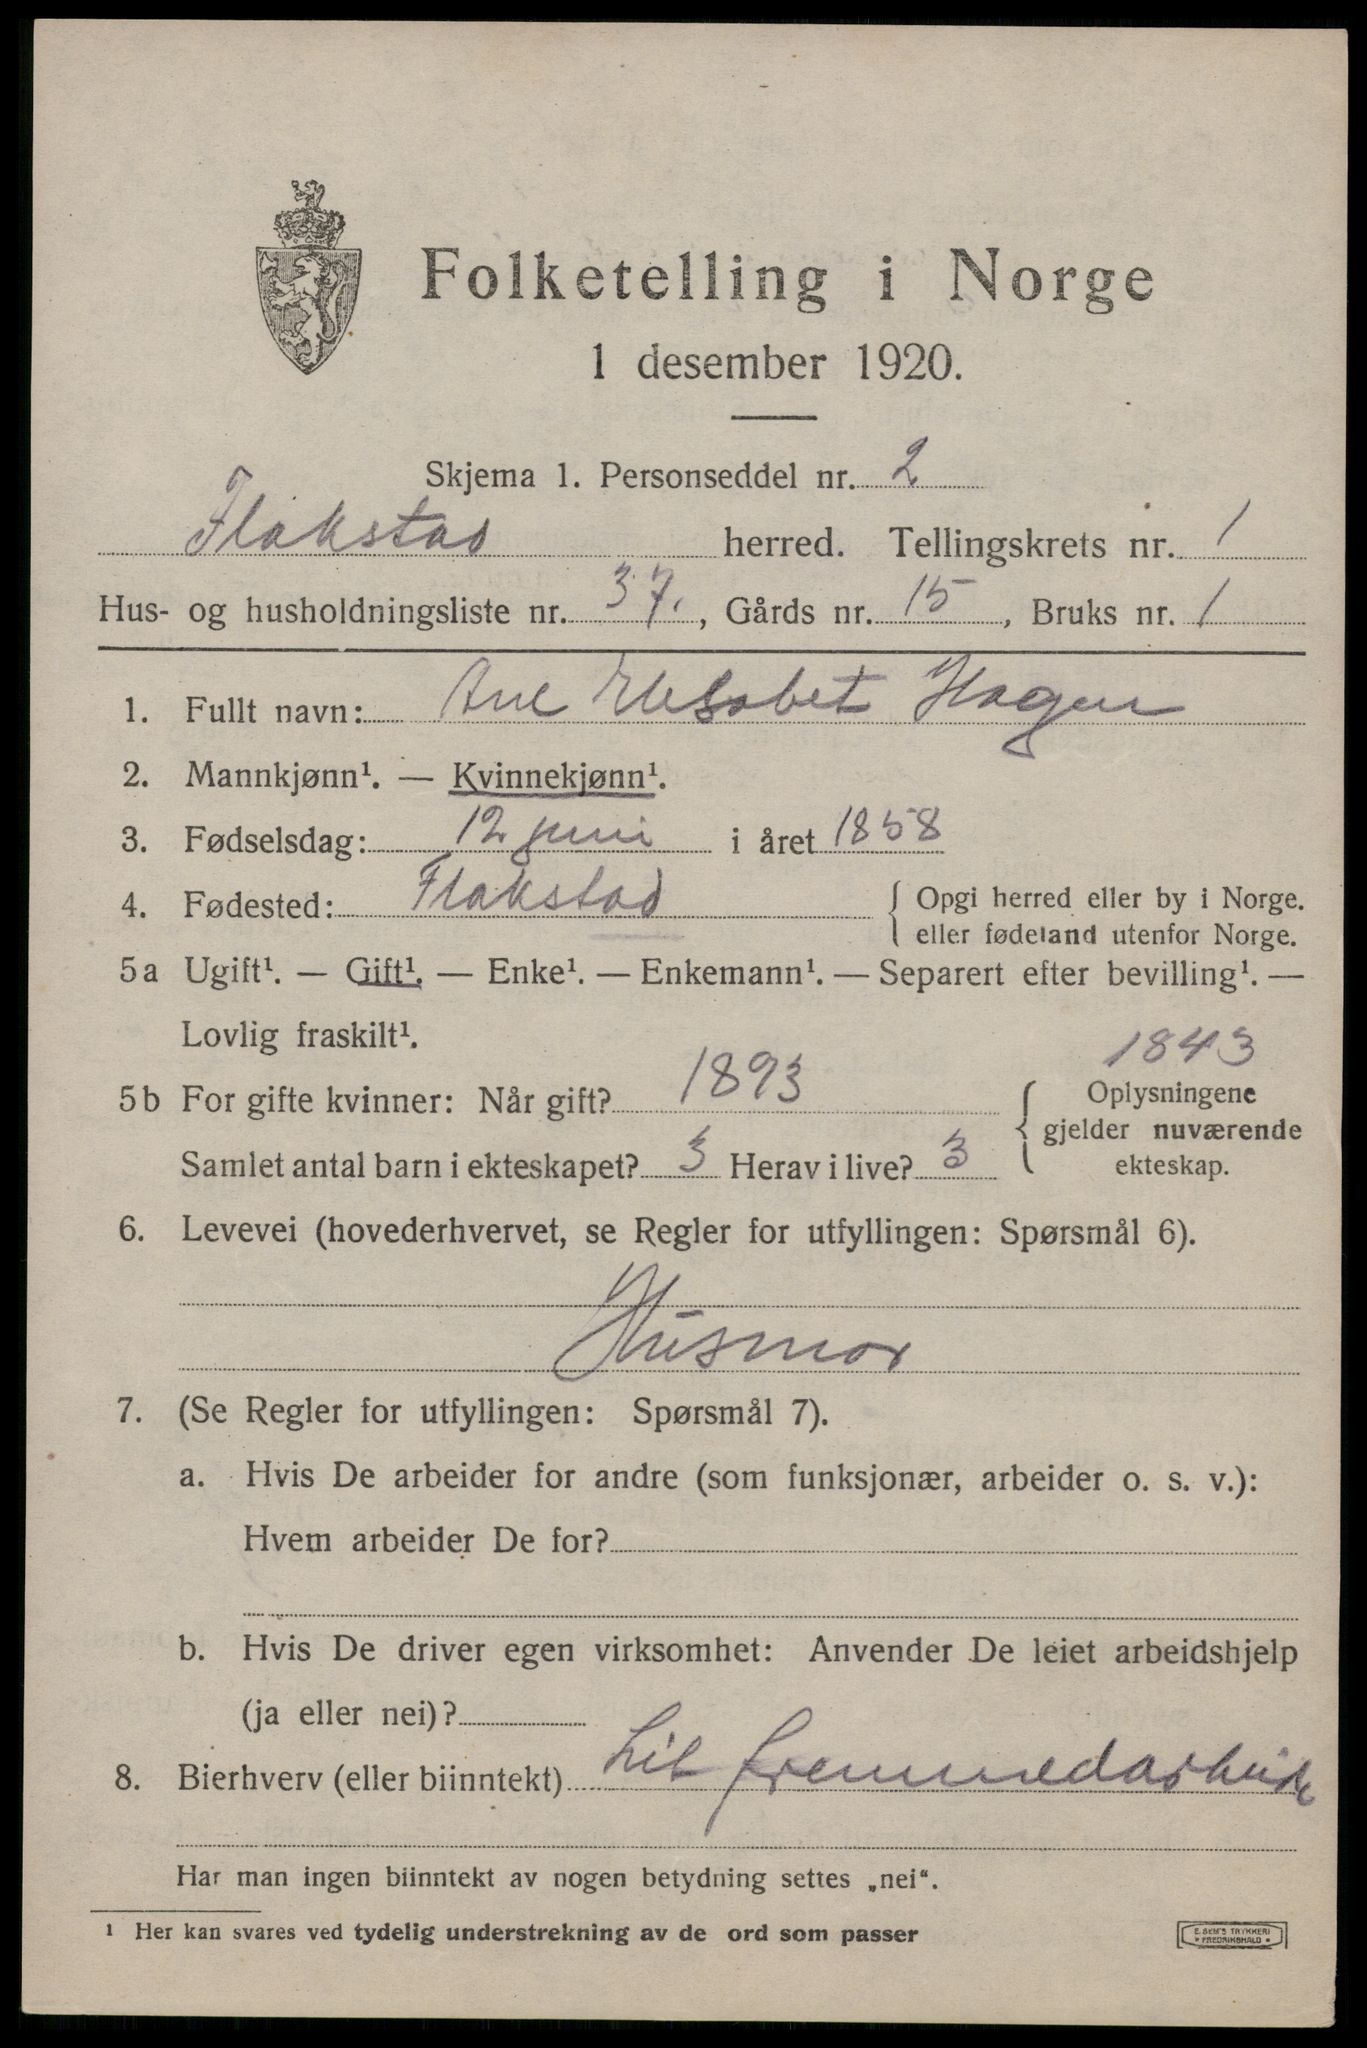 Folketelling i Norge
1 desember 1920.
Skjema 1. Personseddel nr. 2
Flakstad herred. Tellingskrets nr. 1
Hus- og husholdningsliste nr. 37., Gårds nr. 15, Bruks nr. 1
1. Fullt navn: Ane Elesabet Hagen
2. Mannkjønn¹. — Kvinnekjønn¹.
3. Fødselsdag: 12 juni i året 1858
4. Fødested: Flakstad { Opgi herred eller by i Norge.
eller fødeland utenfor Norge.
5a Ugift¹. — Gift¹. — Enke¹. — Enkemann¹. — Separert efter bevilling¹. —
Lovlig fraskilt¹.
1843
5b For gifte kvinner: Når gift? 1893 { Oplysningene
gjelder nuværende
Samlet antal barn i ekteskapet? 3 Herav i live? 3 ekteskap.
6. Levevei (hovederhvervet, se Regler for utfyllingen: Spørsmål 6).
Husmor
7. (Se Regler for utfyllingen: Spørsmål 7).
a. Hvis De arbeider for andre (som funksjonær, arbeider o. s. v.):
Hvem arbeider De for?
b. Hvis De driver egen virksomhet: Anvender De leiet arbeidshjelp
(ja eller nei)?
8. Bierhverv (eller biinntekt) Lit fremmedarbeide
Har man ingen biinntekt av nogen betydning settes „nei“.
¹ Her kan svares ved tydelig understrekning av de ord som passer
E. SEM'S TRYKKERI
• FREDRIKSHALD •